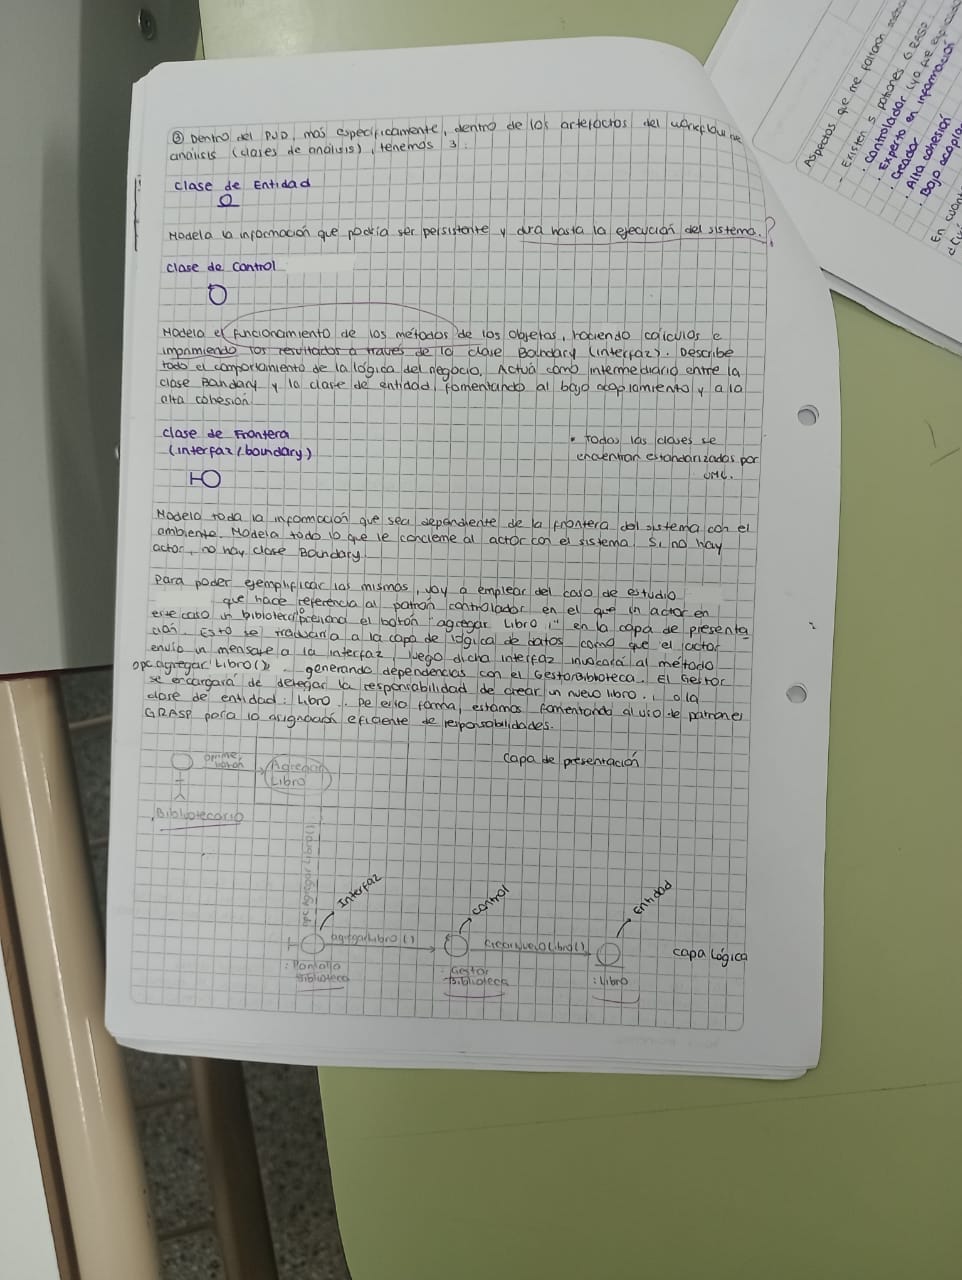 ③ Dentro del PUD, más específicamente, dentro de los artefactos del workflow de
análisis (clases de análisis), tenemos 3:
clase de Entidad
Modela la información que podría ser persistente y dura hasta la ejecución del sistema. ?
clase de control
Modela el funcionamiento de los métodos de los objetos, haciendo cálculos e
imprimiendo los resultados a través de la clase Boundary (interfaz). Describe
todo el comportamiento de la lógica del negocio. Actúa como intermediario entre la
clase Boundary y la clase de entidad, fomentando al bajo acoplamiento y a la
alta cohesión.
clase de Frontera
(interfaz / boundary)
• Todas las clases se
encuentran estandarizadas por
UML.
Modela toda la información que sea dependiente de la frontera del sistema con el
ambiente. Modela todo lo que le concierne al actor con el sistema. Si no hay
actor, no hay clase Boundary.
Para poder ejemplificar las mismas, voy a emplear del caso de estudio
que hace referencia al patrón controlador en el que un actor en
este caso un bibliotecario presiona el botón "agregar Libro" en la capa de presenta
ción. Esto se traduciría a la capa de lógica de datos como que el actor
envía un mensaje a la interfaz, luego dicha interfaz invocará al método
opcagregar Libro() generando dependencias con el GestorBiblioteca. El Gestor
se encargará de delegar la responsabilidad de crear un nuevo libro a la
clase de entidad: Libro. De esta forma, estamos fomentando al uso de patrones
GRASP para la asignación eficiente de responsabilidades.
oprime
botón
Agregar
Libro
capa de presentación
Bibliotecario
opc Agregar Libro()
Interfaz
control
Entidad
agregarLibro()
crearNuevoLibro()
capa Lógica
:Pantalla
Biblioteca
:Gestor
Biblioteca
:Libro
Aspectos que me faltaron
- Existen 5 patrones GRASP
• Controlador (ya fue
• Experto en información
• Creador
• Alta cohesión
• Bajo acopla
En cuan